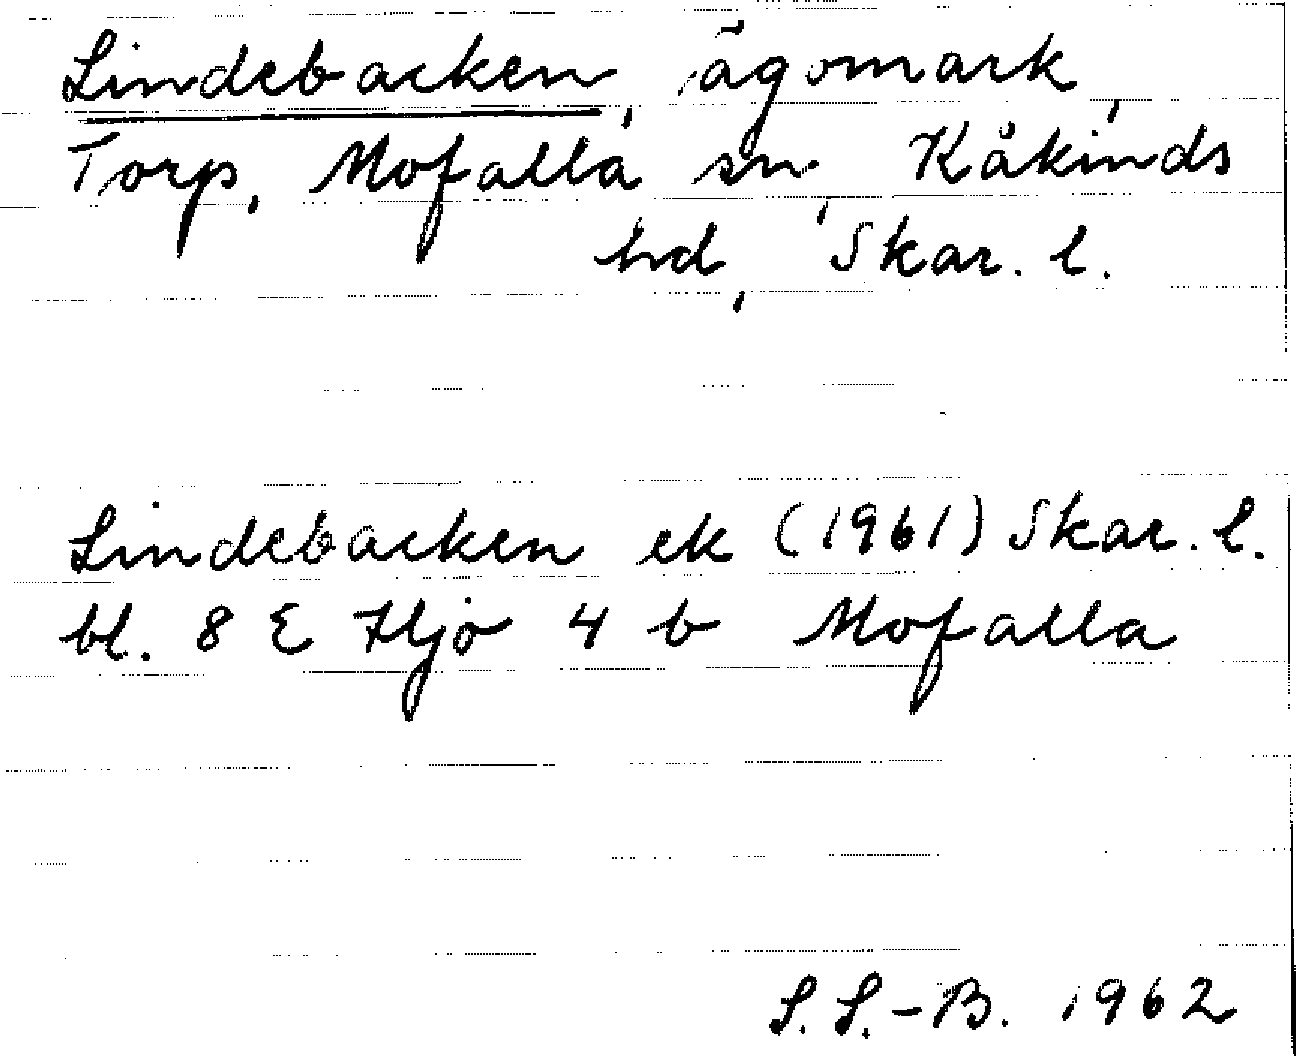 Lindebacken, ägomark,
Torp, Mofalla sn, Kåkinds
hd, Skar. l.
Lindebacken ek (1961) Skar. l.
bl. 8 E Hjo 4 b Mofalla
S. S.-B. 1962